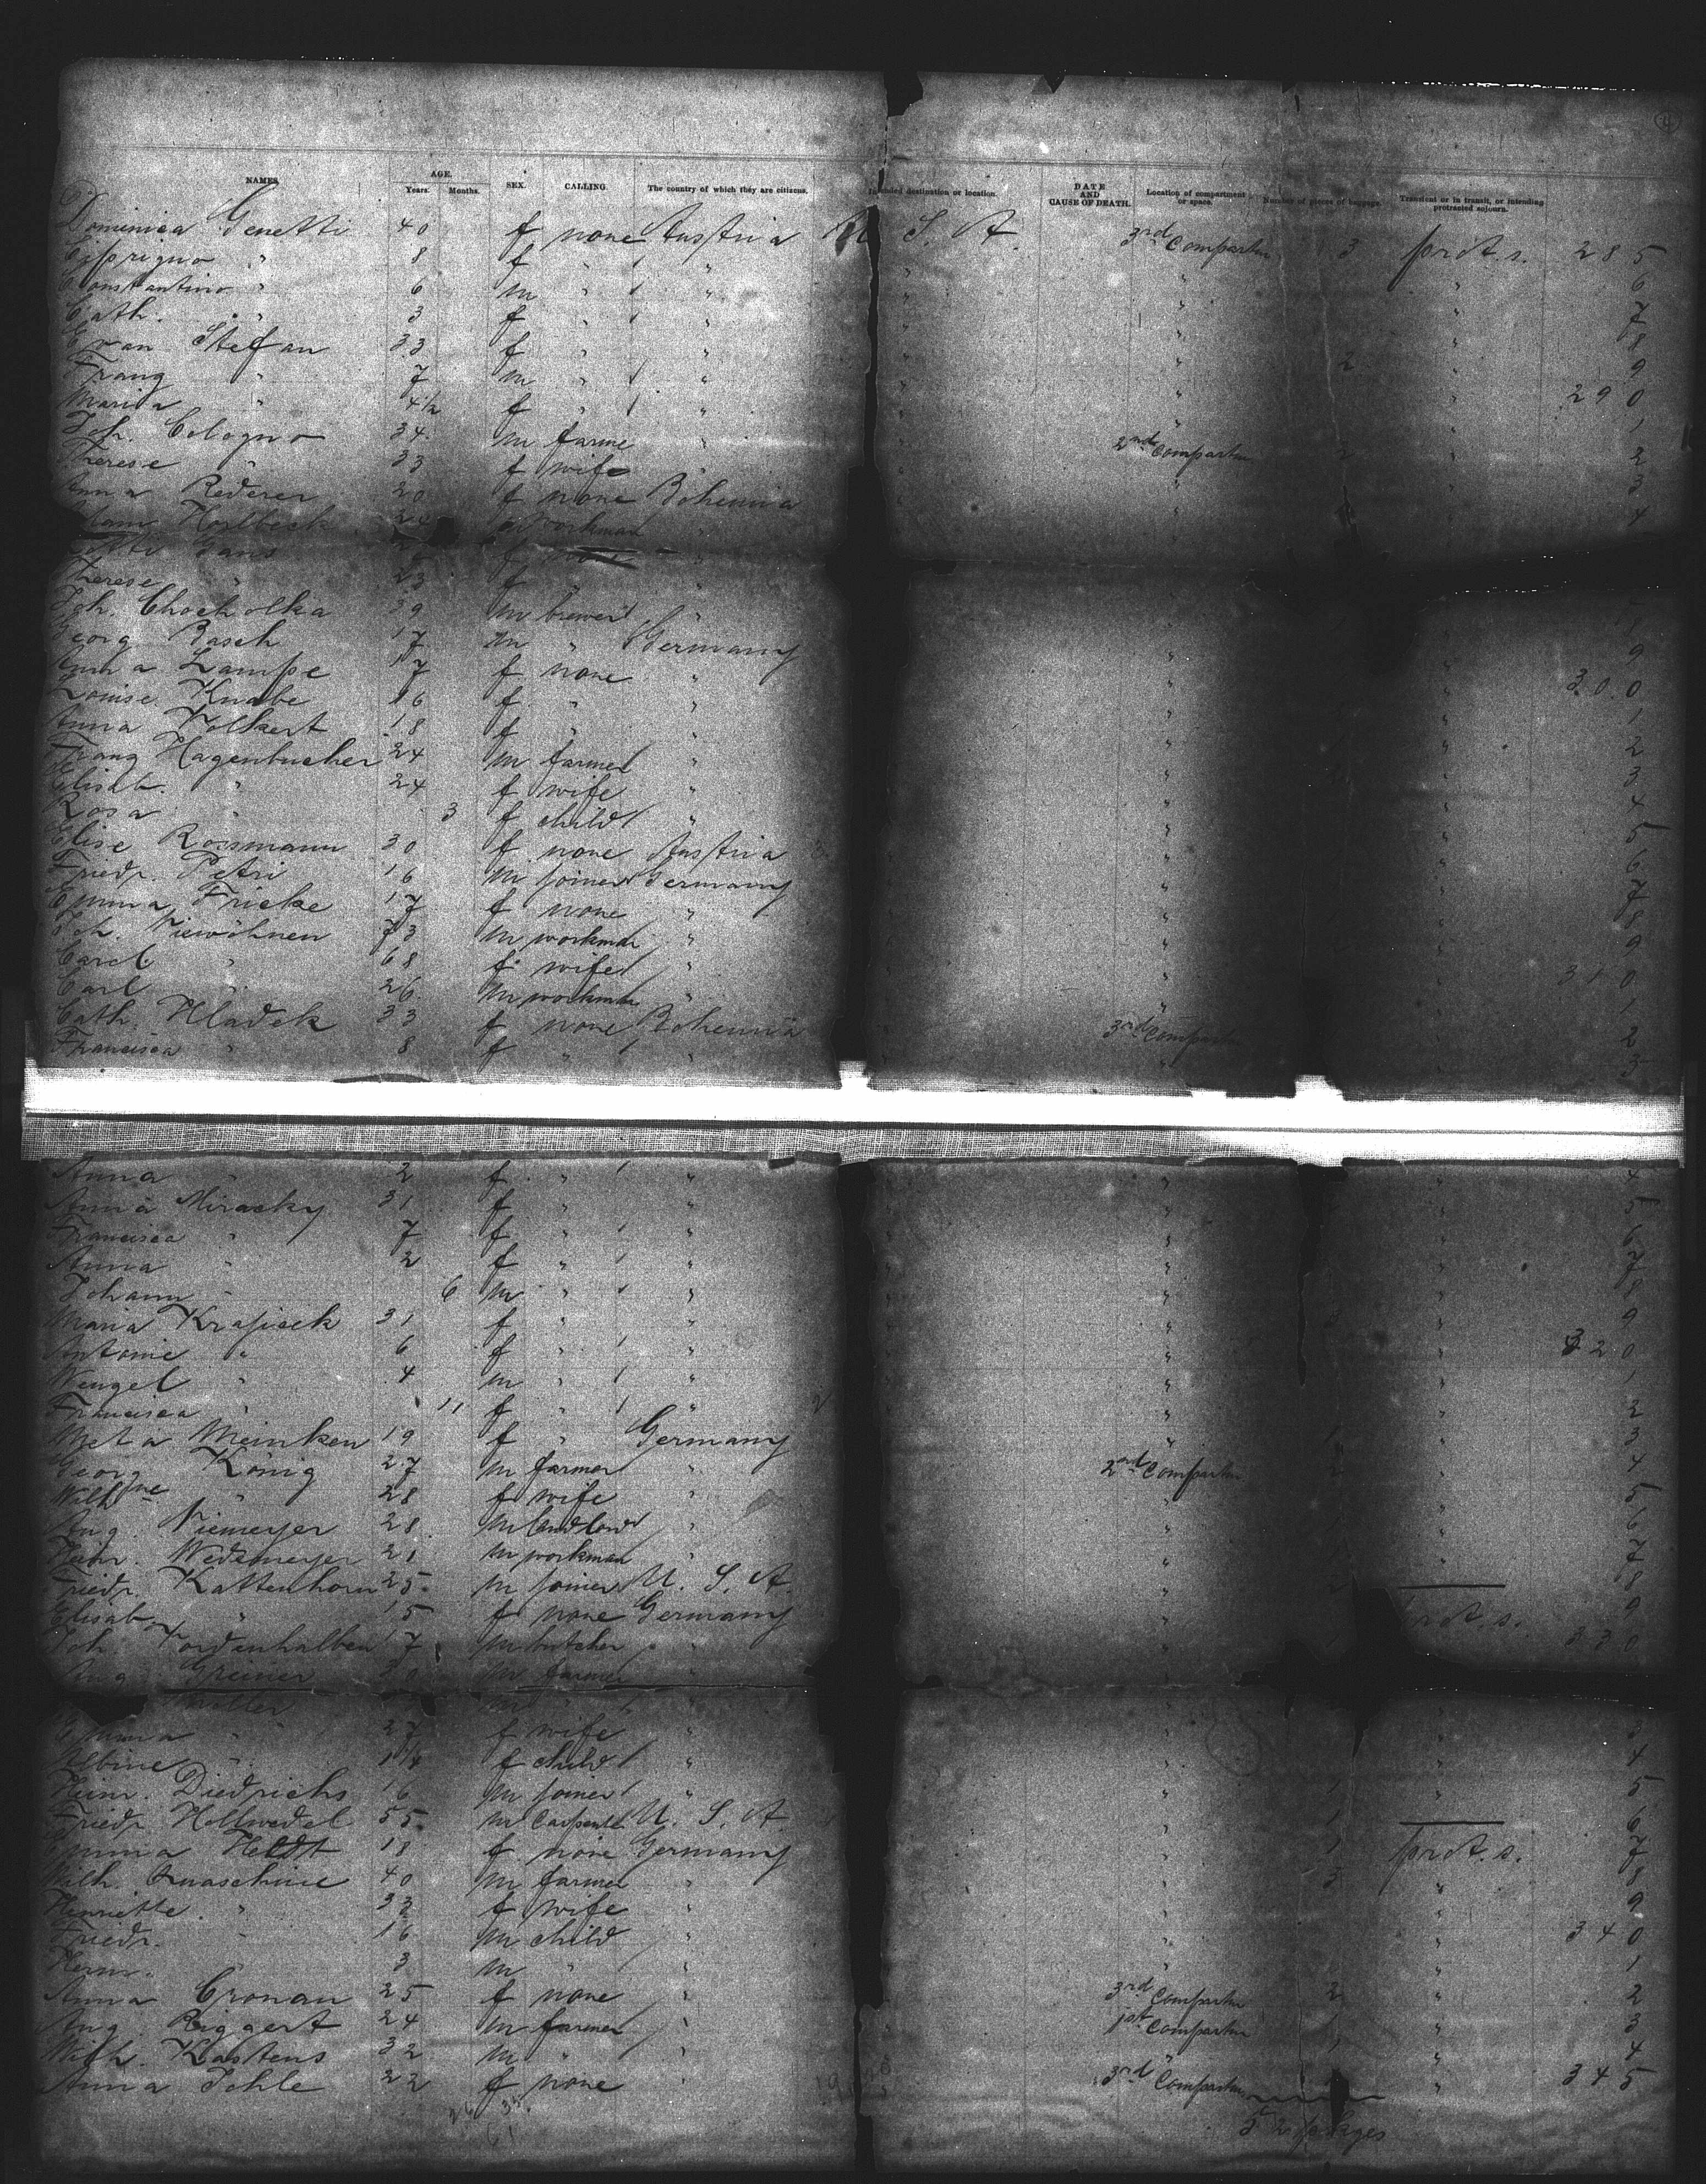 4
NAMES. AGE. Years. Months. SEX. CALLING. The country of which they are citizens. Intended destination or location. DATE AND CAUSE OF DEATH. Location of compartment or space. Number of pieces of baggage. Transient or in transit, or intending protracted sojourn.
Dominica Genetti 40 f none Austria U. S. A. 3rd Compartm 3 prot. s. 285
Ciprigno " 8 f " " " " " 6
Constantino " 6 m " " " " " 7
Cath. " 3 f " " " " " 8
Stefan 33 f " " " " 2 " 9
Franz " 7 m " " " " " 290
Maria " 4½ f " " " " " 1
Joh. Cologno 34 m farmer " " 2nd Compartm 2 " 2
Therese " 33 f wife " " " " 3
Anna Rederer 20 f none Bohemia " " " 4
Adam Horlbeck 24 m workman "
Gans f none "
Therese " 23 f " "
Joh. Chocholka 39 m brewer "
Georg Rasch 17 m " Germany " " 9
Anna Lampe 17 f none " " " 300
Louise Knabe 16 f " " " " 1
Anna Volkert 18 f " " " " 2
Franz Hagenbucher 24 m farmer " " " 3
Elisab. " 24 f wife " " " 4
Rosa " 3 f child " " " 5
Elise Rossmann 30 f none Austria " " 6
Friedr. Petri 16 m joiner Germany " " 7
Emma Fricke 17 f none " " " 8
Joh. Niewöhner 73 m workman " " " 9
Carol. " 68 f wife " " " 310
Carl " 26 m workman " " " 1
Cath. Hladek 33 f none Bohemia 3rd Compartm " 2
Francisca " 8 f " " " " 3
Anna " 2 f " " " " " 4
Anna Miracky 31 f " " " " " 5
Francisca " 7 f " " " " " 6
Anna " 2 f " " " " " 7
Johann " 6 m " " " " " 8
Maria Krajicek 31 f " " " " 3 " 9
Antonie " 6 f " " " " " 320
Wenzel " 4 m " " " " " 1
Francisca " 11 f " " " " " 2
Meta Meinken 19 f " Germany " " 1 " 3
Georg König 27 m farmer " " 2nd Compartm 2 " 4
Wilhne " 28 f wife " " " " 5
Aug. Niemeyer 28 m landlord " " " " 6
Heinr. Wedemeyer 21 m workman " " " " 7
Friedr. Kattenhorn 25 m joiner U. S. A. " " 8
Elisab. " 15 f none Germany " " prot. s. 9
Joh. Nordenhalben 17 m butcher " " " 1 " 330
Aug. Greiner 30 m farmer "
Müller m " "
Emma " 27 f wife " " " 3
Albine " 1¼ f child " " " 4
Heinr. Diedrichs 16 m joiner " " 1 " 5
Friedr. Hollwedel 55 m Carpenter U. S. A. " 1 6
Emma Heldt 18 f none Germany " 1 prot. s. 7
Wilh. Quaschnie 40 m farmer " " 3 " 8
Henriette " 33 f wife " " " 9
Friedr. " 16 m child " " " 340
Herm. " 3 m " " " " 1
Anna Cronau 25 f none " 3rd Compartm 2 " 2
Aug. Riggert 24 m farmer " 1st Compartm 1 " 3
Wilh. Kastens 32 m " " " 1 " 4
Anna Johle 22 f none " 3rd Compartm " 345
26 35
61
52 pckges